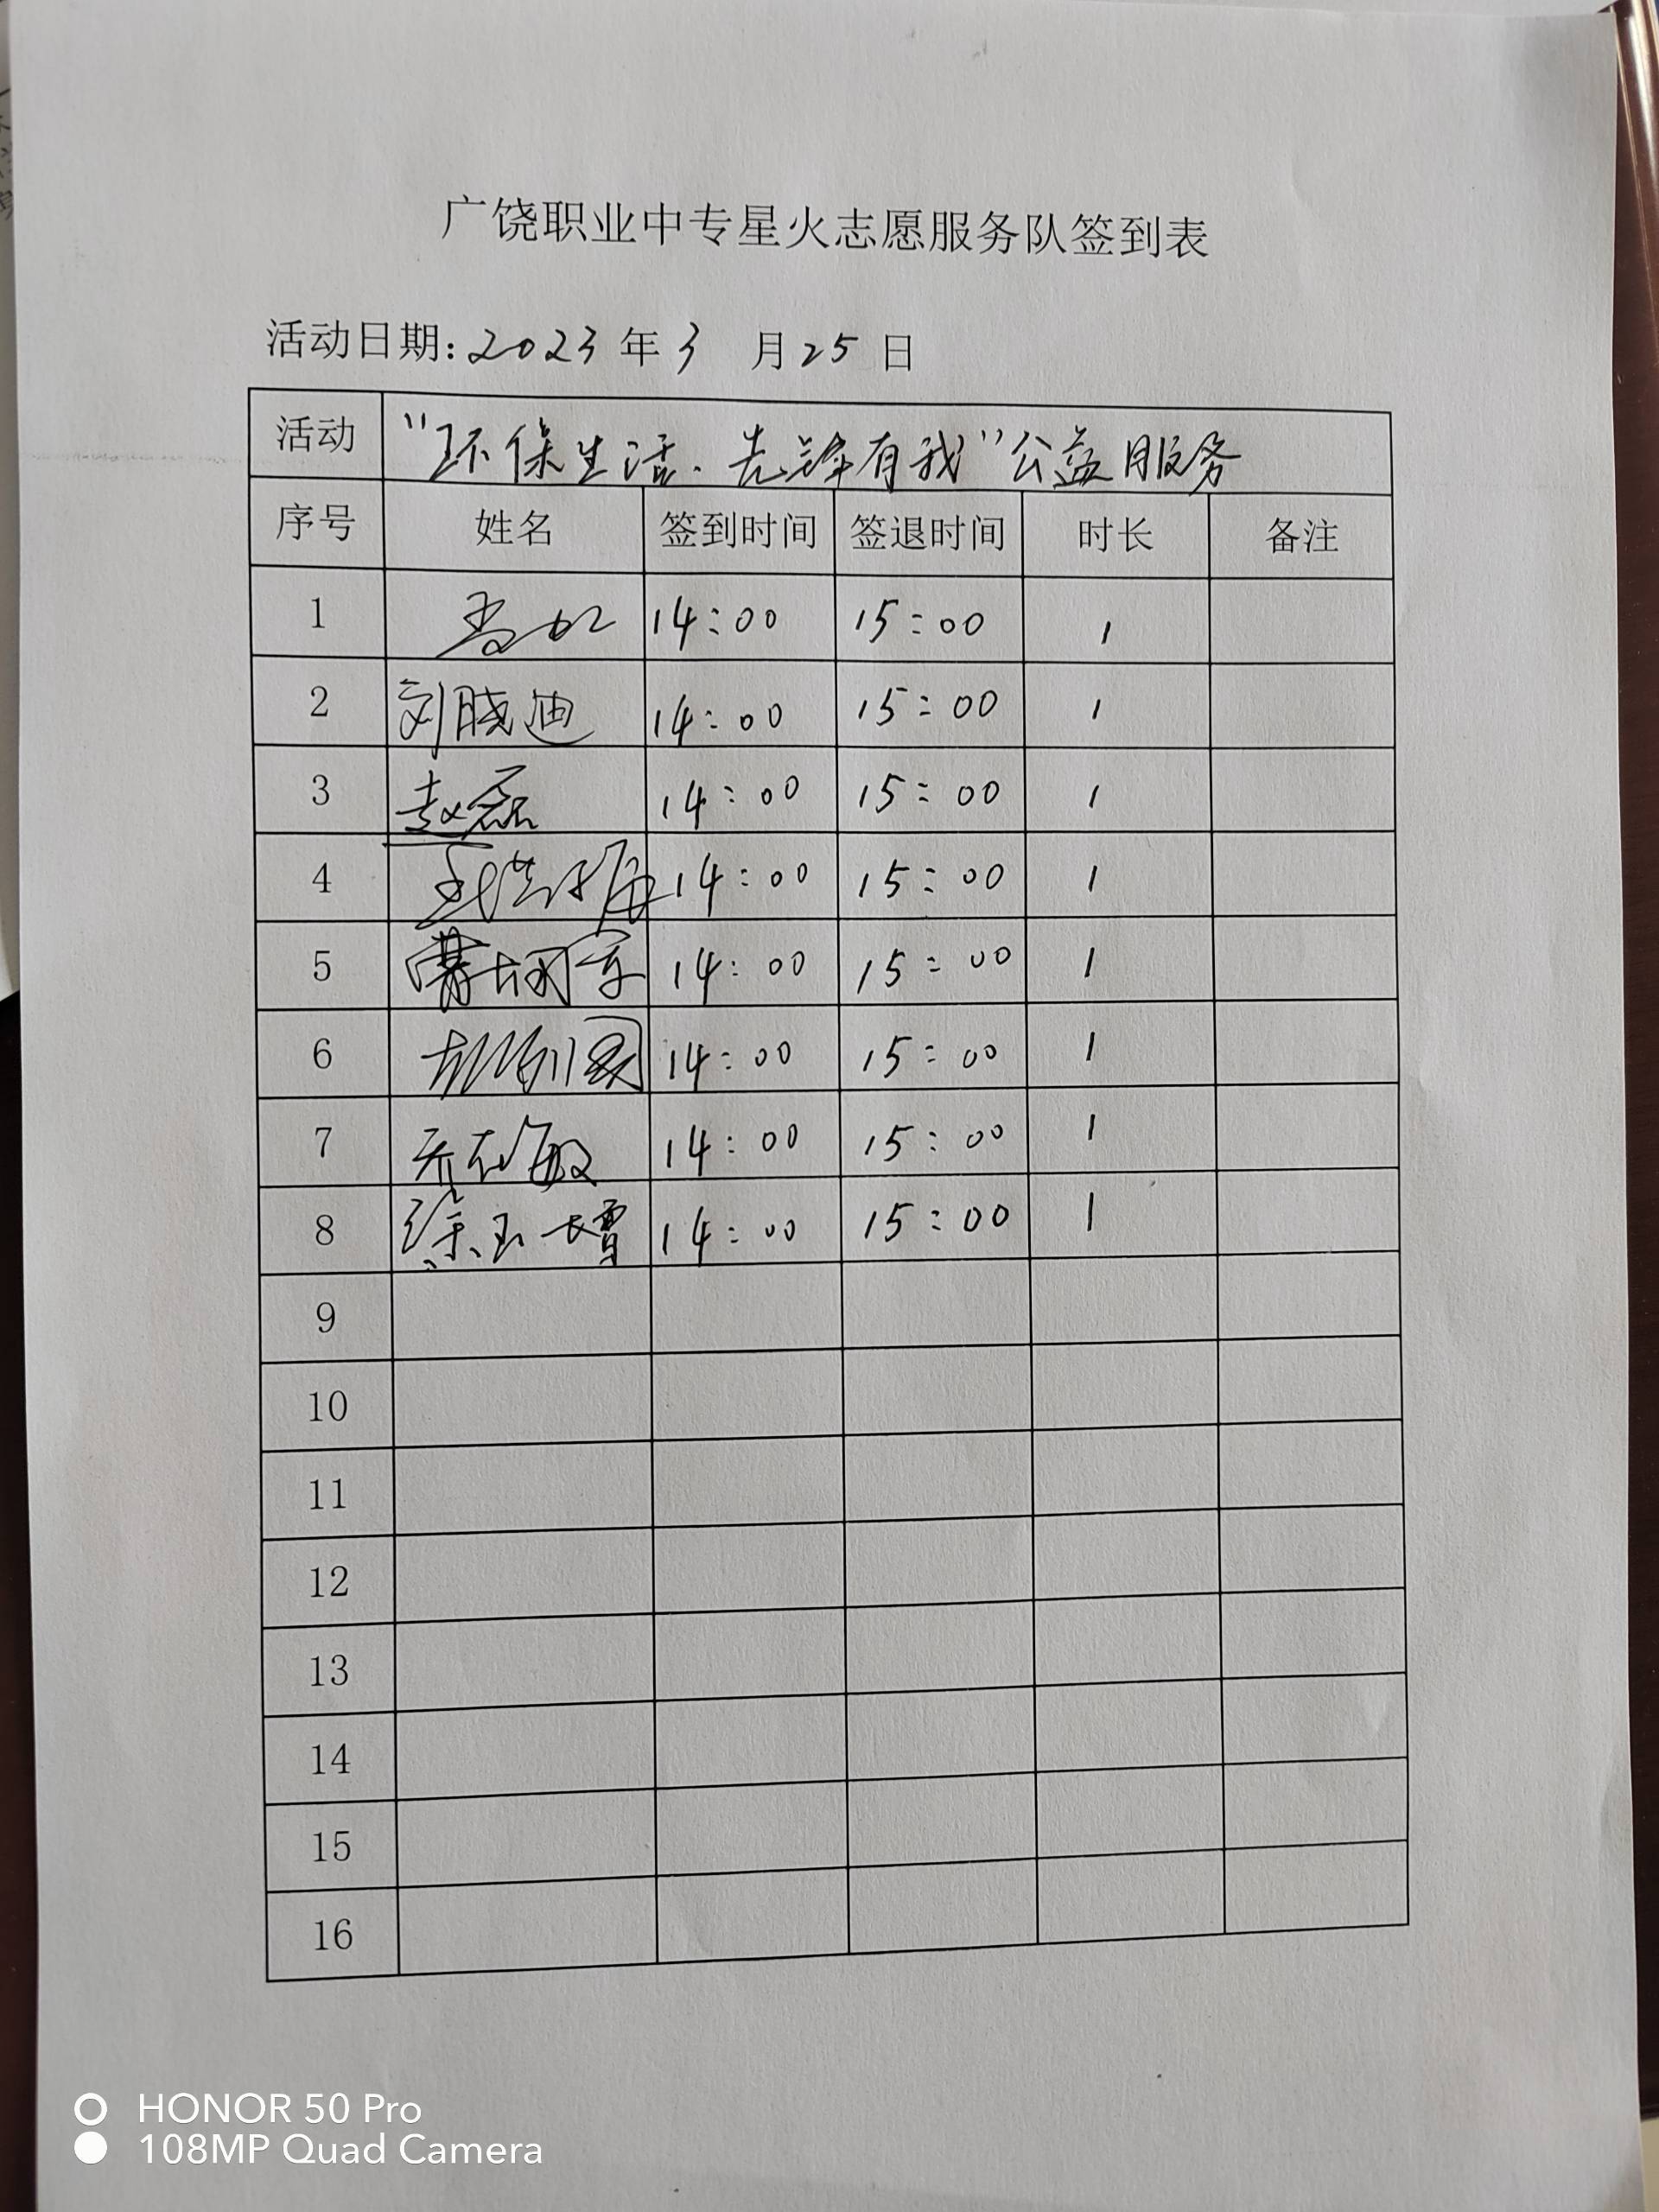 广饶职业中专星火志愿服务队签到表
活动日期:2023 年 3 月 25 日
活动 “环保生活.先锋有我”公益服务
序号 姓名 签到时间 签退时间 时长 备注
1 14:00 15:00 1
2 刘晓迪 14:00 15:00 1
3 赵磊 14:00 15:00 1
4 14:00 15:00 1
5 14:00 15:00 1
6 14:00 15:00 1
7 14:00 15:00 1
8 徐玉增 14:00 15:00 1
9
10
11
12
13
14
15
16
HONOR 50 Pro
108MP Quad Camera